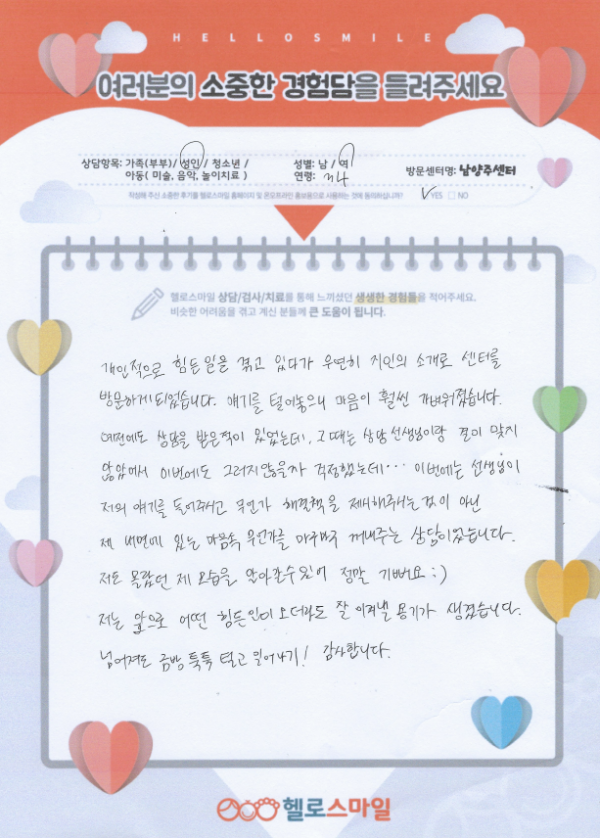 HELLOSMILE
여러분의 소중한 경험담을 들려주세요
상담항목: 가족(부부)/ 성인/ 청소년 /
아동( 미술, 음악, 놀이치료 )
성별: 남 / 여
연령:
방문센터명: 남양주센터
작성해 주신 소중한 후기를 헬로스마일 홈페이지 및 온오프라인 홍보용으로 사용하는 것에 동의하십니까? ✓ YES □ NO
헬로스마일 상담/검사/치료를 통해 느끼셨던 생생한 경험들을 적어주세요.
비슷한 어려움을 겪고 계신 분들께 큰 도움이 됩니다.
개인적으로 힘든일을 겪고 있다가 우연히 지인의 소개로 센터를
방문하게되었습니다. 얘기를 털어놓으니 마음이 훨씬 가벼워졌습니다.
예전에도 상담을 받은적이 있었는데, 그때는 상담 선생님이랑 결이 맞지
않았어서 이번에도 그러지않을까 걱정했는데··· 이번에는 선생님이
저의 얘기를 들어주시고 무언가 해결책을 제시해주시는것이 아닌
제 내면에 있는 마음속 무언가를 마구마구 꺼내주는 상담이었습니다.
저도 몰랐던 제 모습을 알아갈수있어 정말 기뻐요 :)
저는 앞으로 어떤 힘든일이 오더라도 잘 이겨낼 용기가 생겼습니다.
넘어져도 금방 툭툭 털고 일어나기! 감사합니다.
헬로스마일